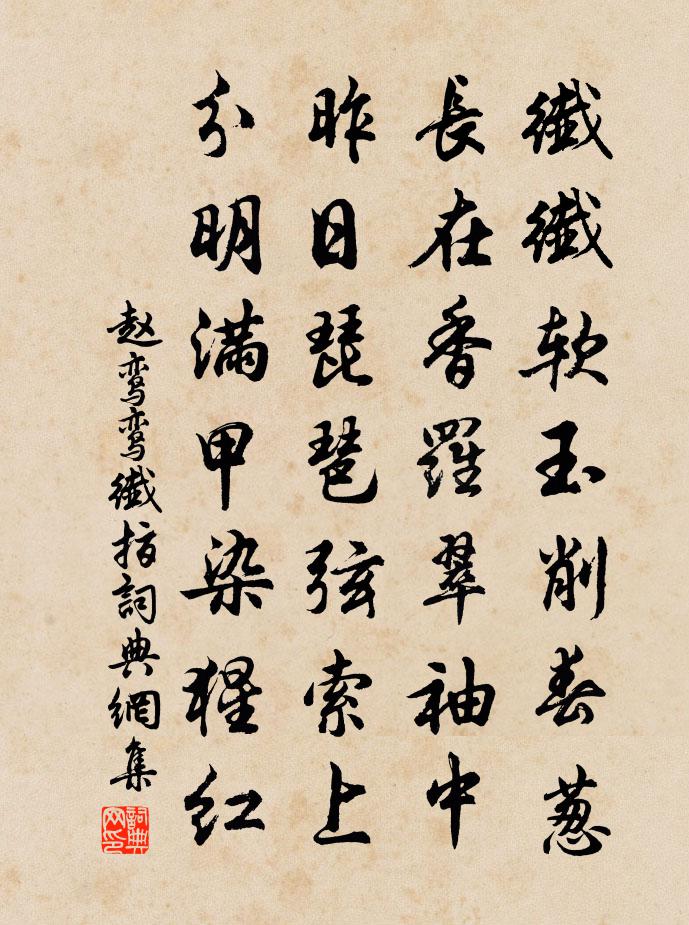 纖纖軟玉削春葱
長在香羅翠袖中
昨日琵琶弦索上
分明滿甲染猩紅
赵鸾鸾纖指詞典網集
詞典网印